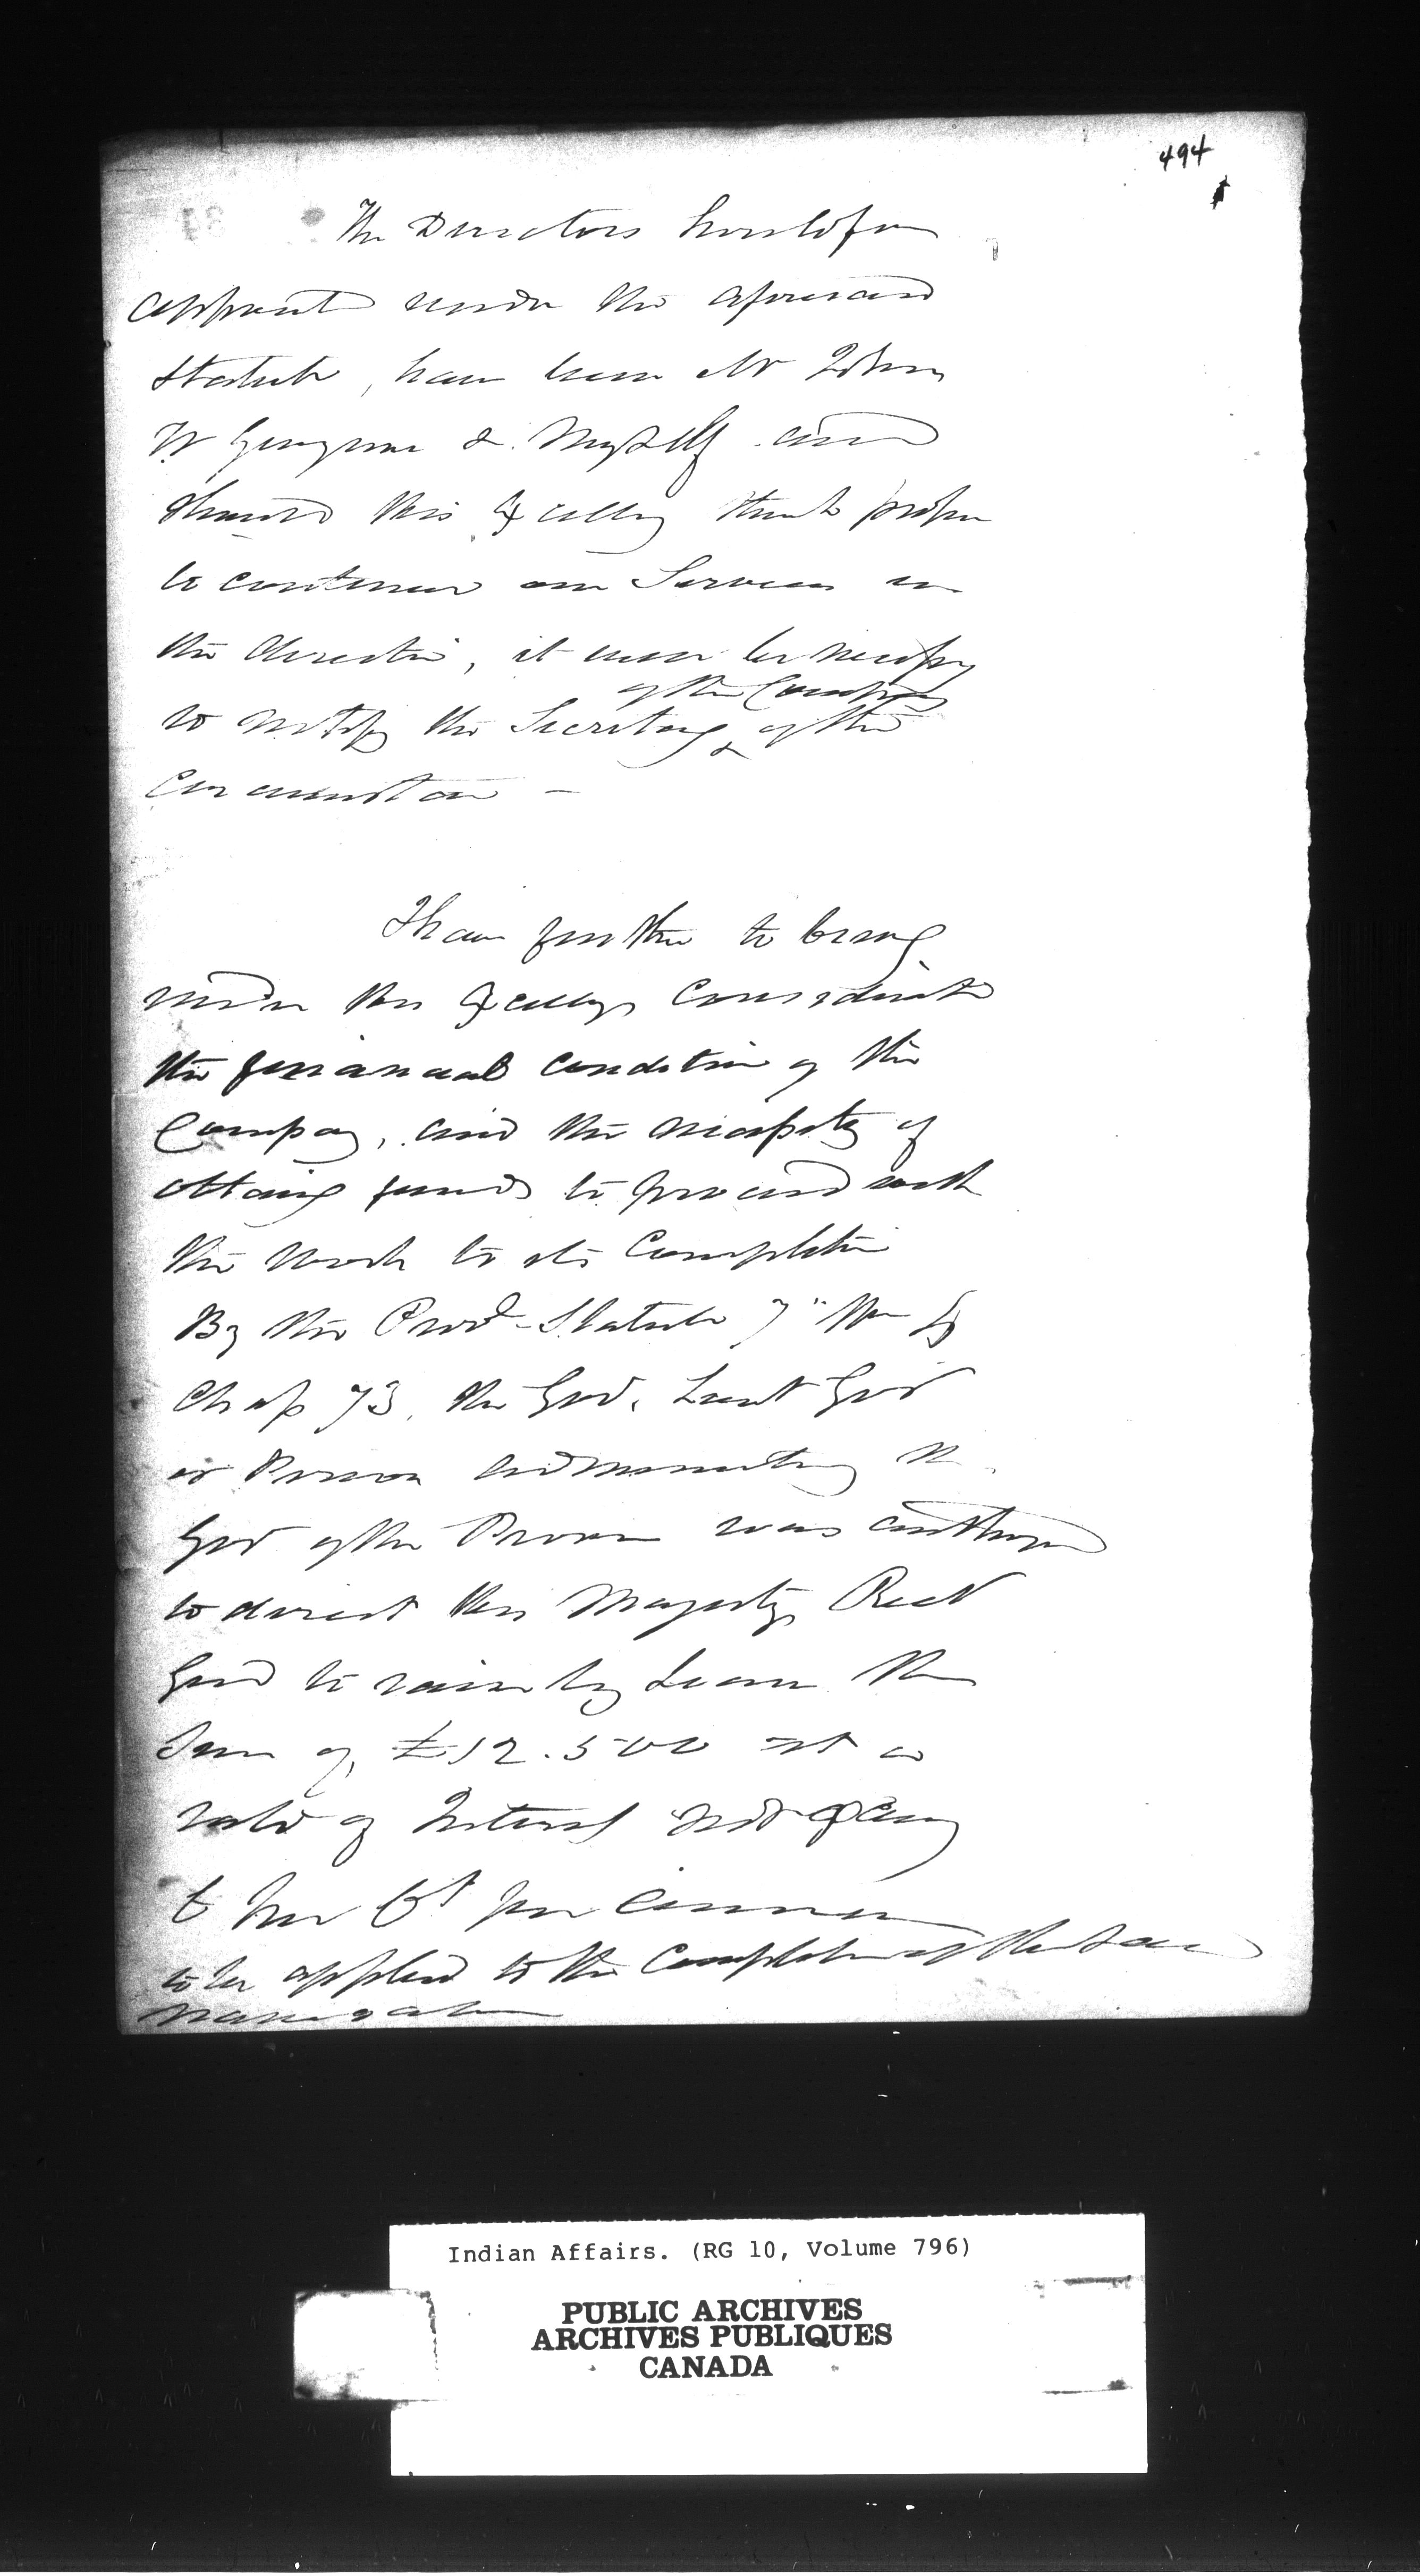 494
The Directors heretofore
appointed under the aforesaid
Statute, have been Mr John
W Gwynne & Myself and
should His Excelly think proper
to continue our Services in
the direction, it will be necessary
of the Company
to notify the Secretary of this
Circumstance –
I have further to bring
under His Excellys Consideration
the financial condition of the
Company, and the necessity of
obtaining funds to proceed with
the Work to its Completion
By the Provl Statute 7" Wm 4
Chap 73, the Gov. Lieut Gov
or Person administering the
Gov of the Province was authorized
to direct His Majestys Recr
Genl to raise by Loan the
Sum of £12.500 at a
rate of Interest not exceeding
per Ct per annum
to be applied to the Completion of the said
Navigation
Indian Affairs. (RG 10, Volume 796)
PUBLIC ARCHIVES
ARCHIVES PUBLIQUES
CANADA